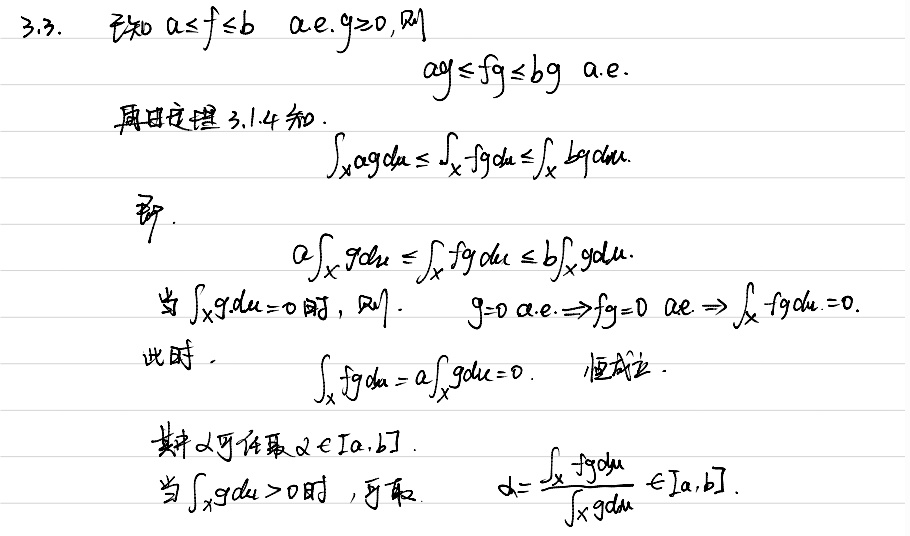 3.3. 已知 a≤f≤b a.e. g≥0, 则
ag≤fg≤bg a.e.
再由定理 3.1.4 知.
∫_X agdμ ≤ ∫_X fgdμ ≤ ∫_X bgdμ.
即.
a∫_X gdμ ≤ ∫_X fgdμ ≤ b∫_X gdμ.
当 ∫_X gdμ=0 时, 则. g=0 a.e. ⇒ fg=0 a.e. ⇒ ∫_X fgdμ=0.
此时.
∫_X fgdμ = a∫_X gdμ=0. 恒成立.
其中 α 可任取 α∈[a,b].
当 ∫_X gdμ>0 时, 可取 α = ∫_X fgdμ / ∫_X gdμ ∈[a,b].